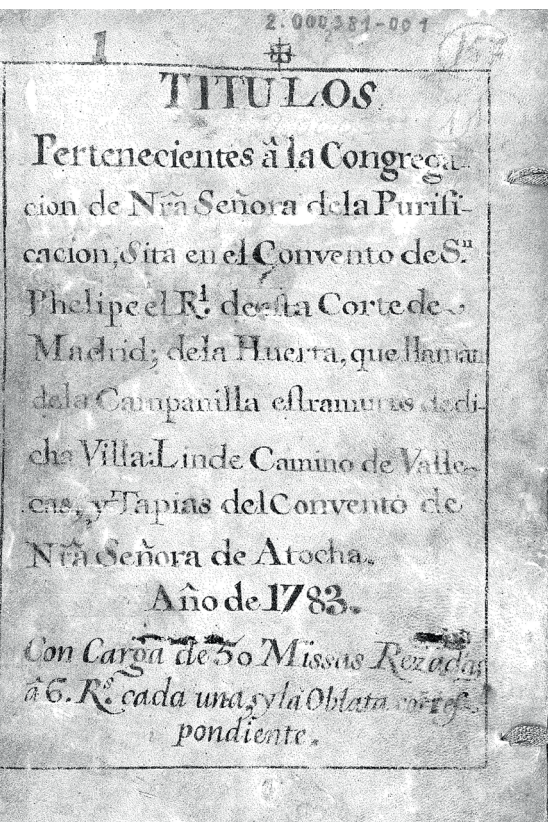 2.000381-001
1
157
TITULOS
Pertenecientes â la Congrega-
cion de Nrã Señora dela Purifi-
cacion, Sita en el Convento de S.ⁿ
Phelipe el R.ˡ de esta Corte de
Madrid; dela Huerta, que llaman
dela Campanilla estramuros dedi-
cha Villa: Linde Camino de Valle-
cas, y Tapias del Convento de
Nrã Señora de Atocha.
Año de 1783.
Con Carga de 50 Missas Rezadas
â 6. R.ˢ cada una, y la Oblata corres-
pondiente.